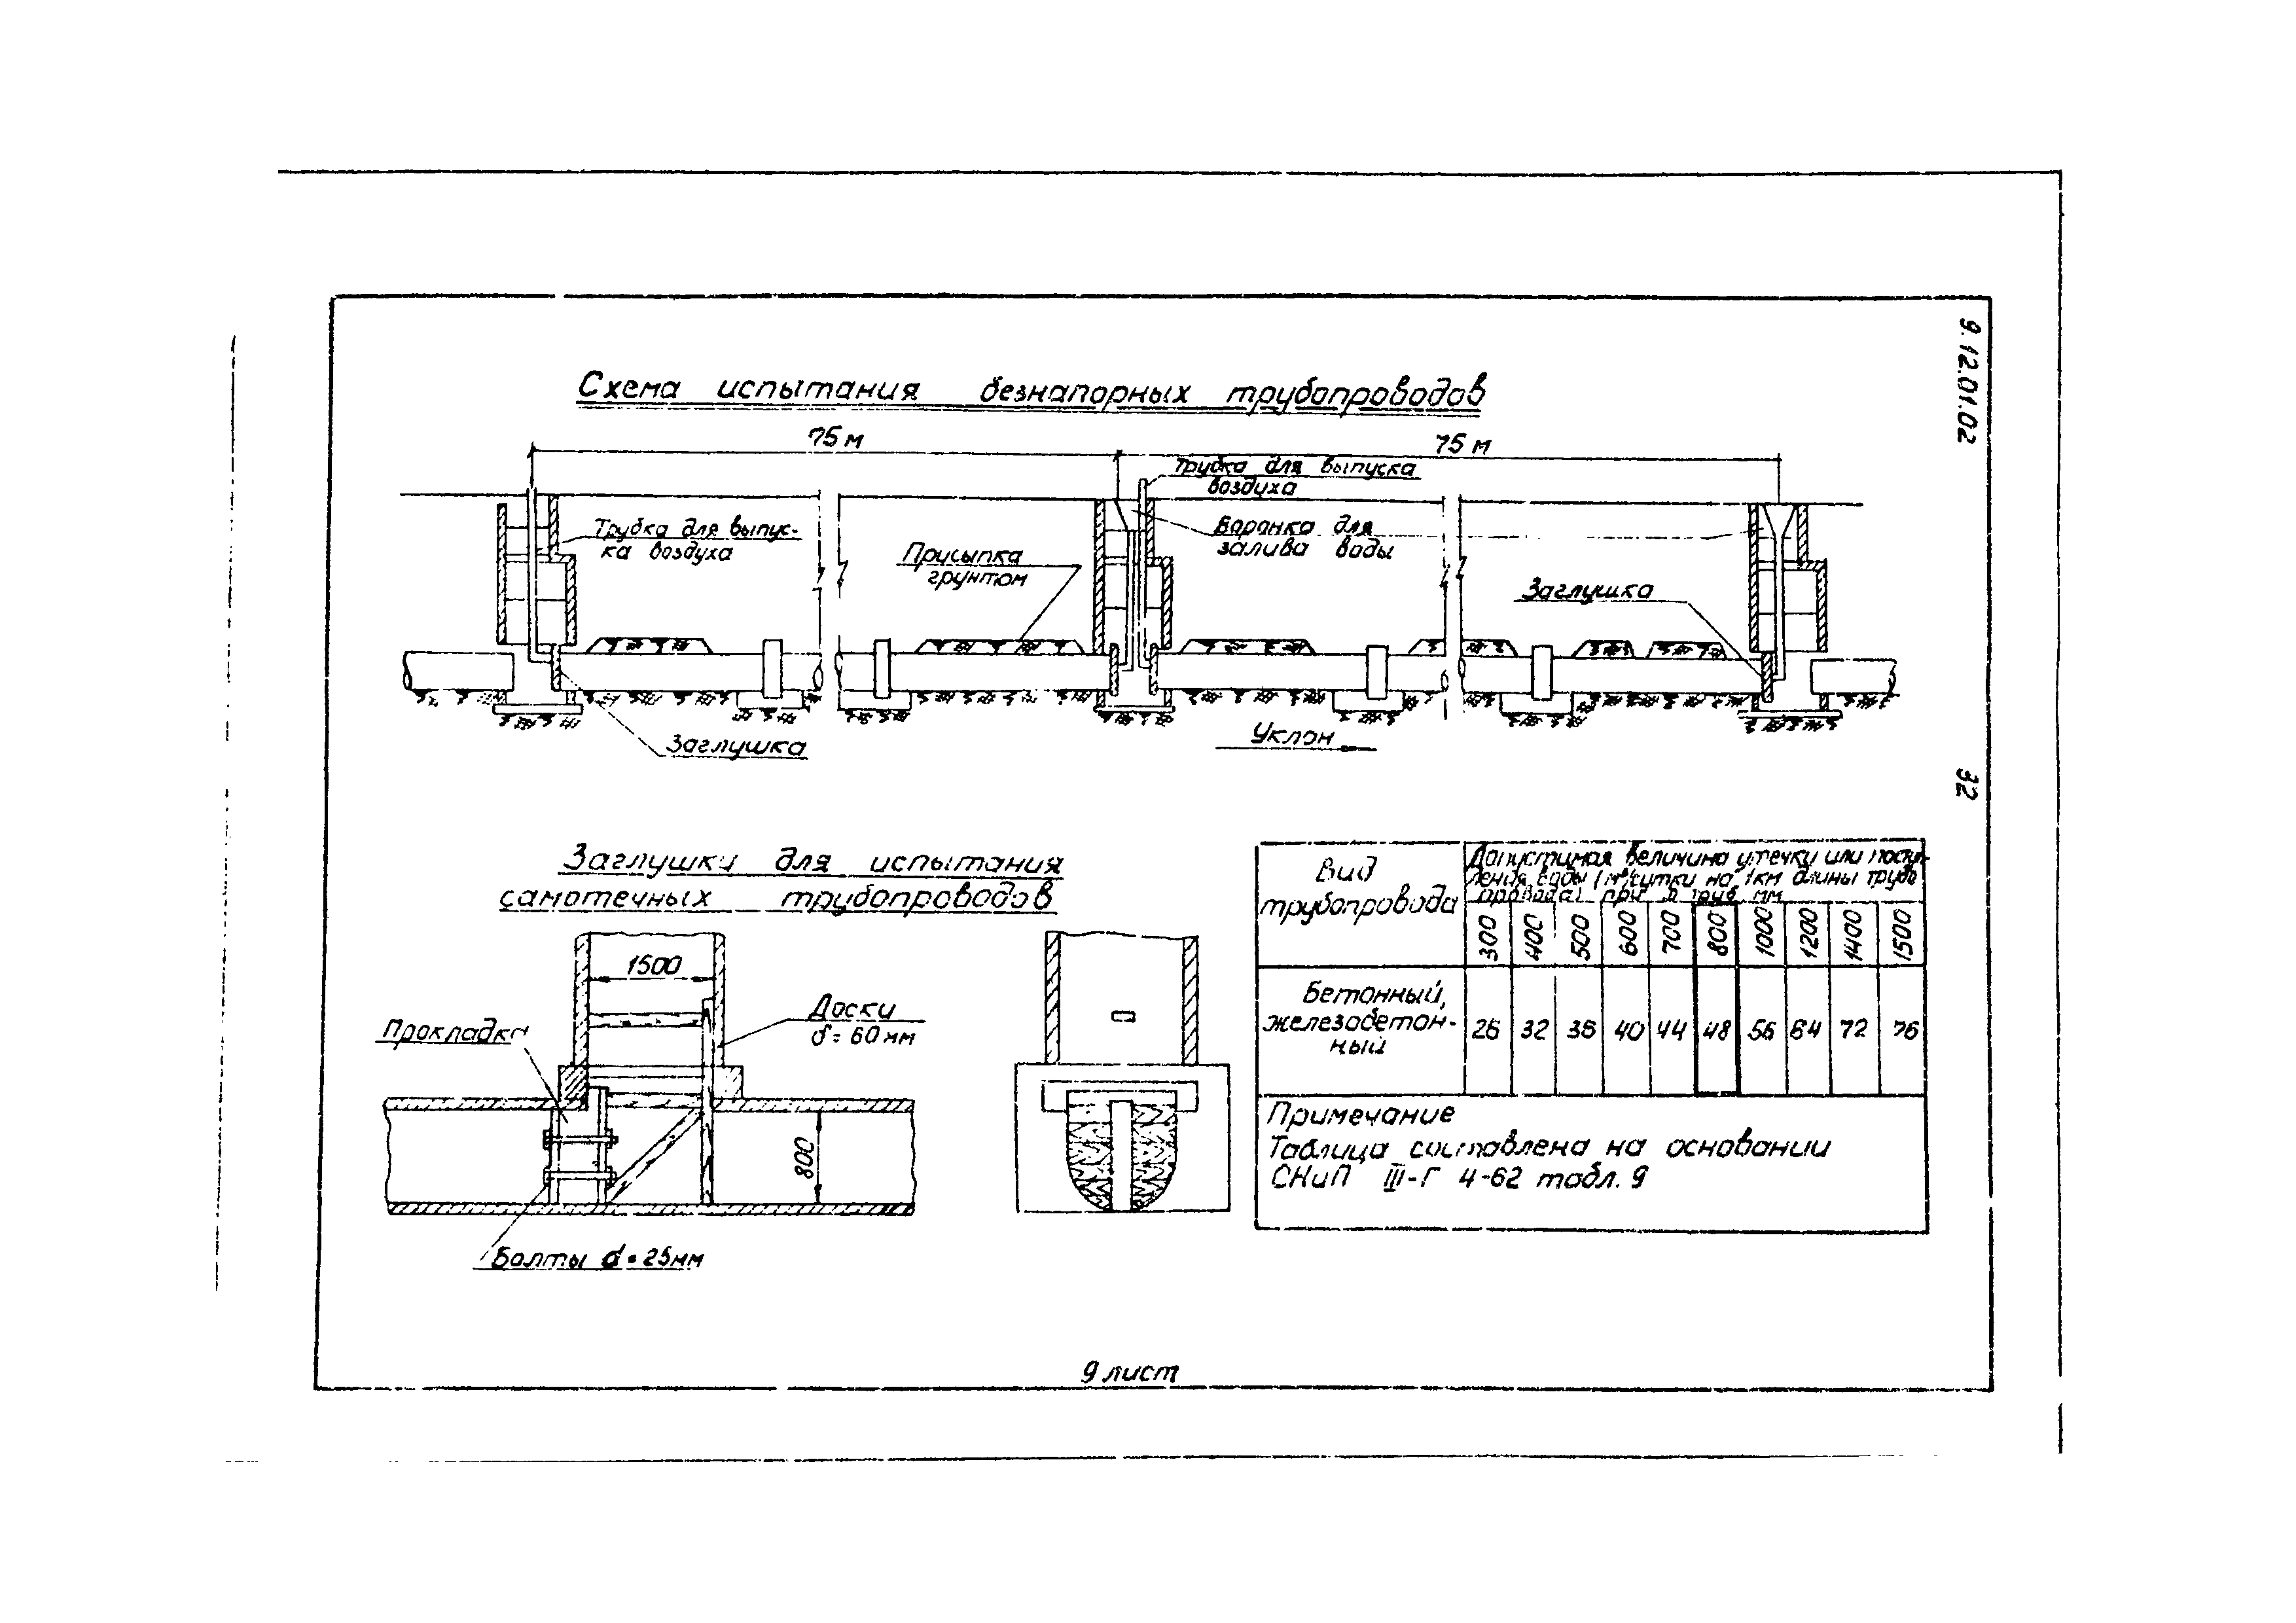 9.12.01.02
32
Схема испытания безнапорных трубопроводов
75 м
75 м
Трубка для выпуска
воздуха
Трубка для выпус-
ка воздуха
Воронка для
залива воды
Присыпка
грунтом
Заглушка
Заглушка
Уклон
Заглушки для испытания
самотечных трубопроводов
1500
Прокладка
Доски
δ = 60 мм
800
Болты d = 25мм
Вид
трубопровода
Допустимая величина утечки или поступ-
ления воды (м³/сутки на 1км длины трубо
провода) при D труб, мм
300 400 500 600 700 800 1000 1200 1400 1500
Бетонный,
железобетон-
ный
26 32 36 40 44 48 56 64 72 76
Примечание
Таблица составлена на основании
СНиП III-Г 4-62 табл. 9
9 лист